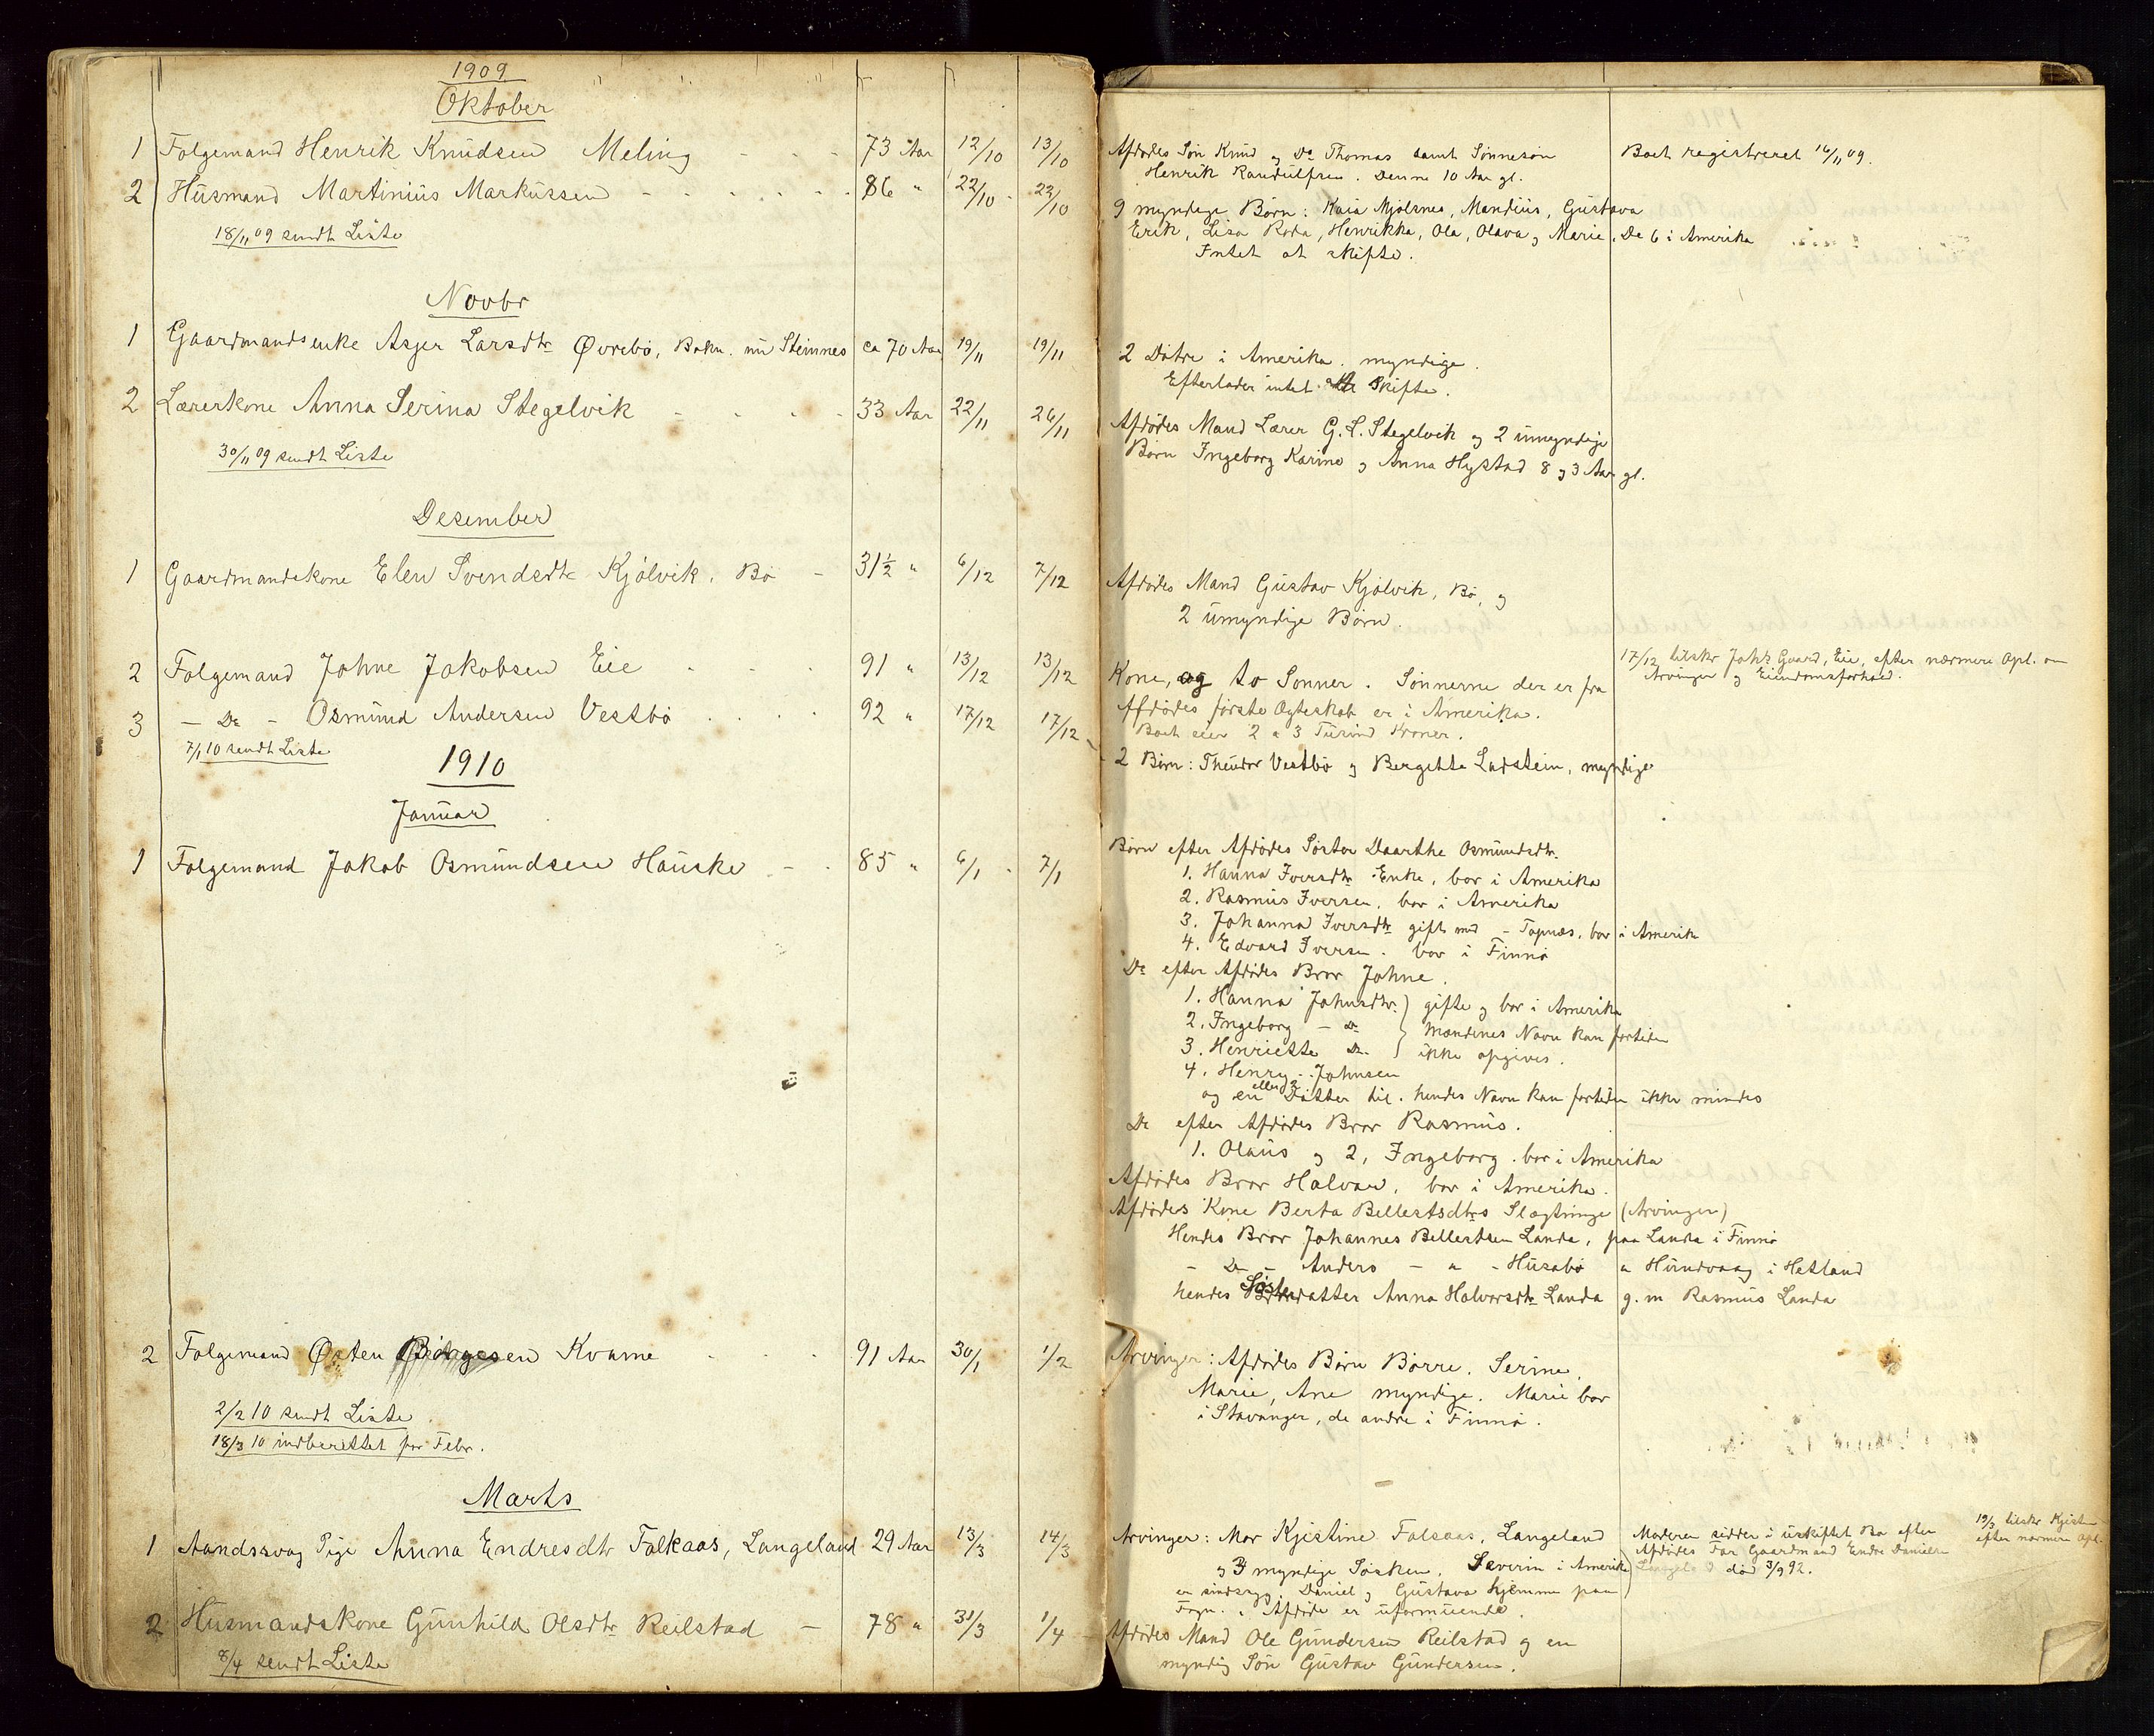 1909
Oktober
1 Folgemand Henrik Knudsen Meling - - - 73 Aar 12/10 13/10
Afdødes Søn Knud og Do Thomas samt Sønnesøn
Henrik Randulfsen. Denne 10 Aar gl.
Boet registreret 16/11 09.
2 Husmand Martinius Markussen - - - - - - 86 " 22/10 - 22/10
9 myndige Børn: Kaia Mjølsnes, Mandius, Gustava
Erik, Lisa Roda, Henrikka, Ola, Olava og Marie. De 6 i Amerika
Intet at skifte.
18/11 09 sendt Liste
Novbr
1 Gaardmandsenke Asger Larsdtr Øvrebø, Bokn. nu Steinnes ca 70 Aar 19/11 19/11
2 Døtre i Amerika. myndige.
Efterlader intet at skifte.
2 Lærerkone Anna Serina Stegelvik - - - - 33 Aar 22/11 26/11
Afdødes Mand Lærer G. L. Stegelvik og 2 umyndige
Børn Ingeborg Karine og Anna Hystad 8 og 3 Aar gl.
30/11 09 sendt Liste
Desember
1 Gaardmandskone Elen Svendsdtr Kjølvik, Bø - 31½ " 6/12 7/12
Afdødes Mand Gustav Kjølvik, Bø, og
2 umyndige Børn.
2 Folgemand Johne Jakobsen Eie - - - 91 " 13/12 13/12
Kone, og to Sønner. Sønnerne der er fra
Afdødes første Ægteskab er i Amerika.
Boet eier 2 a 3 Tusind Kroner.
17/12 tilskr Johs Gaard, Eie, efter nærmere Opl. om
Arvinger og Eiendomsforhold.
3 - Do - Osmund Andersen Vestbø . . . . 92 " 17/12 17/12
2 Børn: Theodor Vestbø og Bergitte Ladstein, myndige
7/1 10 sendt Liste
1910
Januar
1 Folgemand Jakob Osmundsen Hauske - - 85 " 6/1 - 7/1
Børn efter Afdødes Søster Daarthe Osmundsdtr.
1. Hanna Iversdtr Enke, bor i Amerika
2. Rasmus Iversen, bor i Amerika
3. Johanna Iversdtr gift med - Topnæs, bor i Amerik
4. Edvard Iversen. bor i Finnø
Do efter Afdødes Bror Johne.
1. Hanna Johnsdtr. ) gifte og bor i Amerika
2. Ingeborg - Do } Mændenes Navn kan fortiden
3. Henriette Do. ) ikke opgives.
4. Henry - Johnsen
og en eller 2 Døtter til. hendes Navn kan fortiden ikke mindes
Do efter Afdødes Bror Rasmus.
1. Olaus og 2, Ingeborg. bor i Amerika
Afdødes Bror Halvar, bor i Amerika.
Afdødes Kone Berta Bellestsdtrs Slægtninge (Arvinger)
Hendes Bror Johannes Bellestsen Landa, paa Landa i Finnø
- Do - Anders - " - Husabø " Hundvaag i Hetland
hendes Søsterdatter Anna Halvorsdtr Landa g. m Rasmus Landa
2 Folgemand Østen Børgesen Kvame - - - 91 Aar 30/1 1/2
Arvinger: Afdødes Børn Børre, Serine,
Marie, Ane myndige. Marie bor
i Stavanger, de andre i Finnø.
2/2 10 sendt Liste
18/3 10 indberettet for Febr.
Marts
1 Aandssvag Pige Anna Endresdtr Falkaas, Langeland 29 Aar 13/3 14/3
Arvinger: Mor Kjistine Falsaas, Langeland
og 3 myndige Søsken. Severin i Amerika
er sindssyg, Daniel og Gustava hjemme paa
Fogn. Afdøde er uformuende.
Moderen sidder i uskiftet Bo efter
Afdødes Far Gaardmand Endre Danielsen
død 3/9 92.
19/3 tilskr Kjisten
efter nærmere Opl.
2 Husmandskone Gunhild Olsdtr Reilstad - 78 " 31/3 1/4
Afdødes Mand Ole Gundersen Reilstad og en
myndig Søn Gustav Gundersen.
8/4 sendt Liste